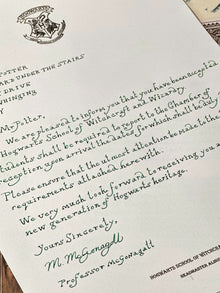 HOGWARTS
POTTER
UNDER THE STAIRS
DRIVE
WHINGING
Mr. Potter,
We are pleased to inform you that you have been accepted
Hogwarts School of Witchcraft and Wizardry.
students shall be required to report to the Chamber of
reception upon arrival, the dates for which shall be duly
Please ensure that the utmost attention be made to the
requirements attached herewith.
We very much look forward to receiving you a
new generation of Hogwarts heritage.
Yours Sincerely,
M. McGonagall
Professor McGonagall
HOGWARTS SCHOOL OF WITCHCRA
HEADMASTER ALBU